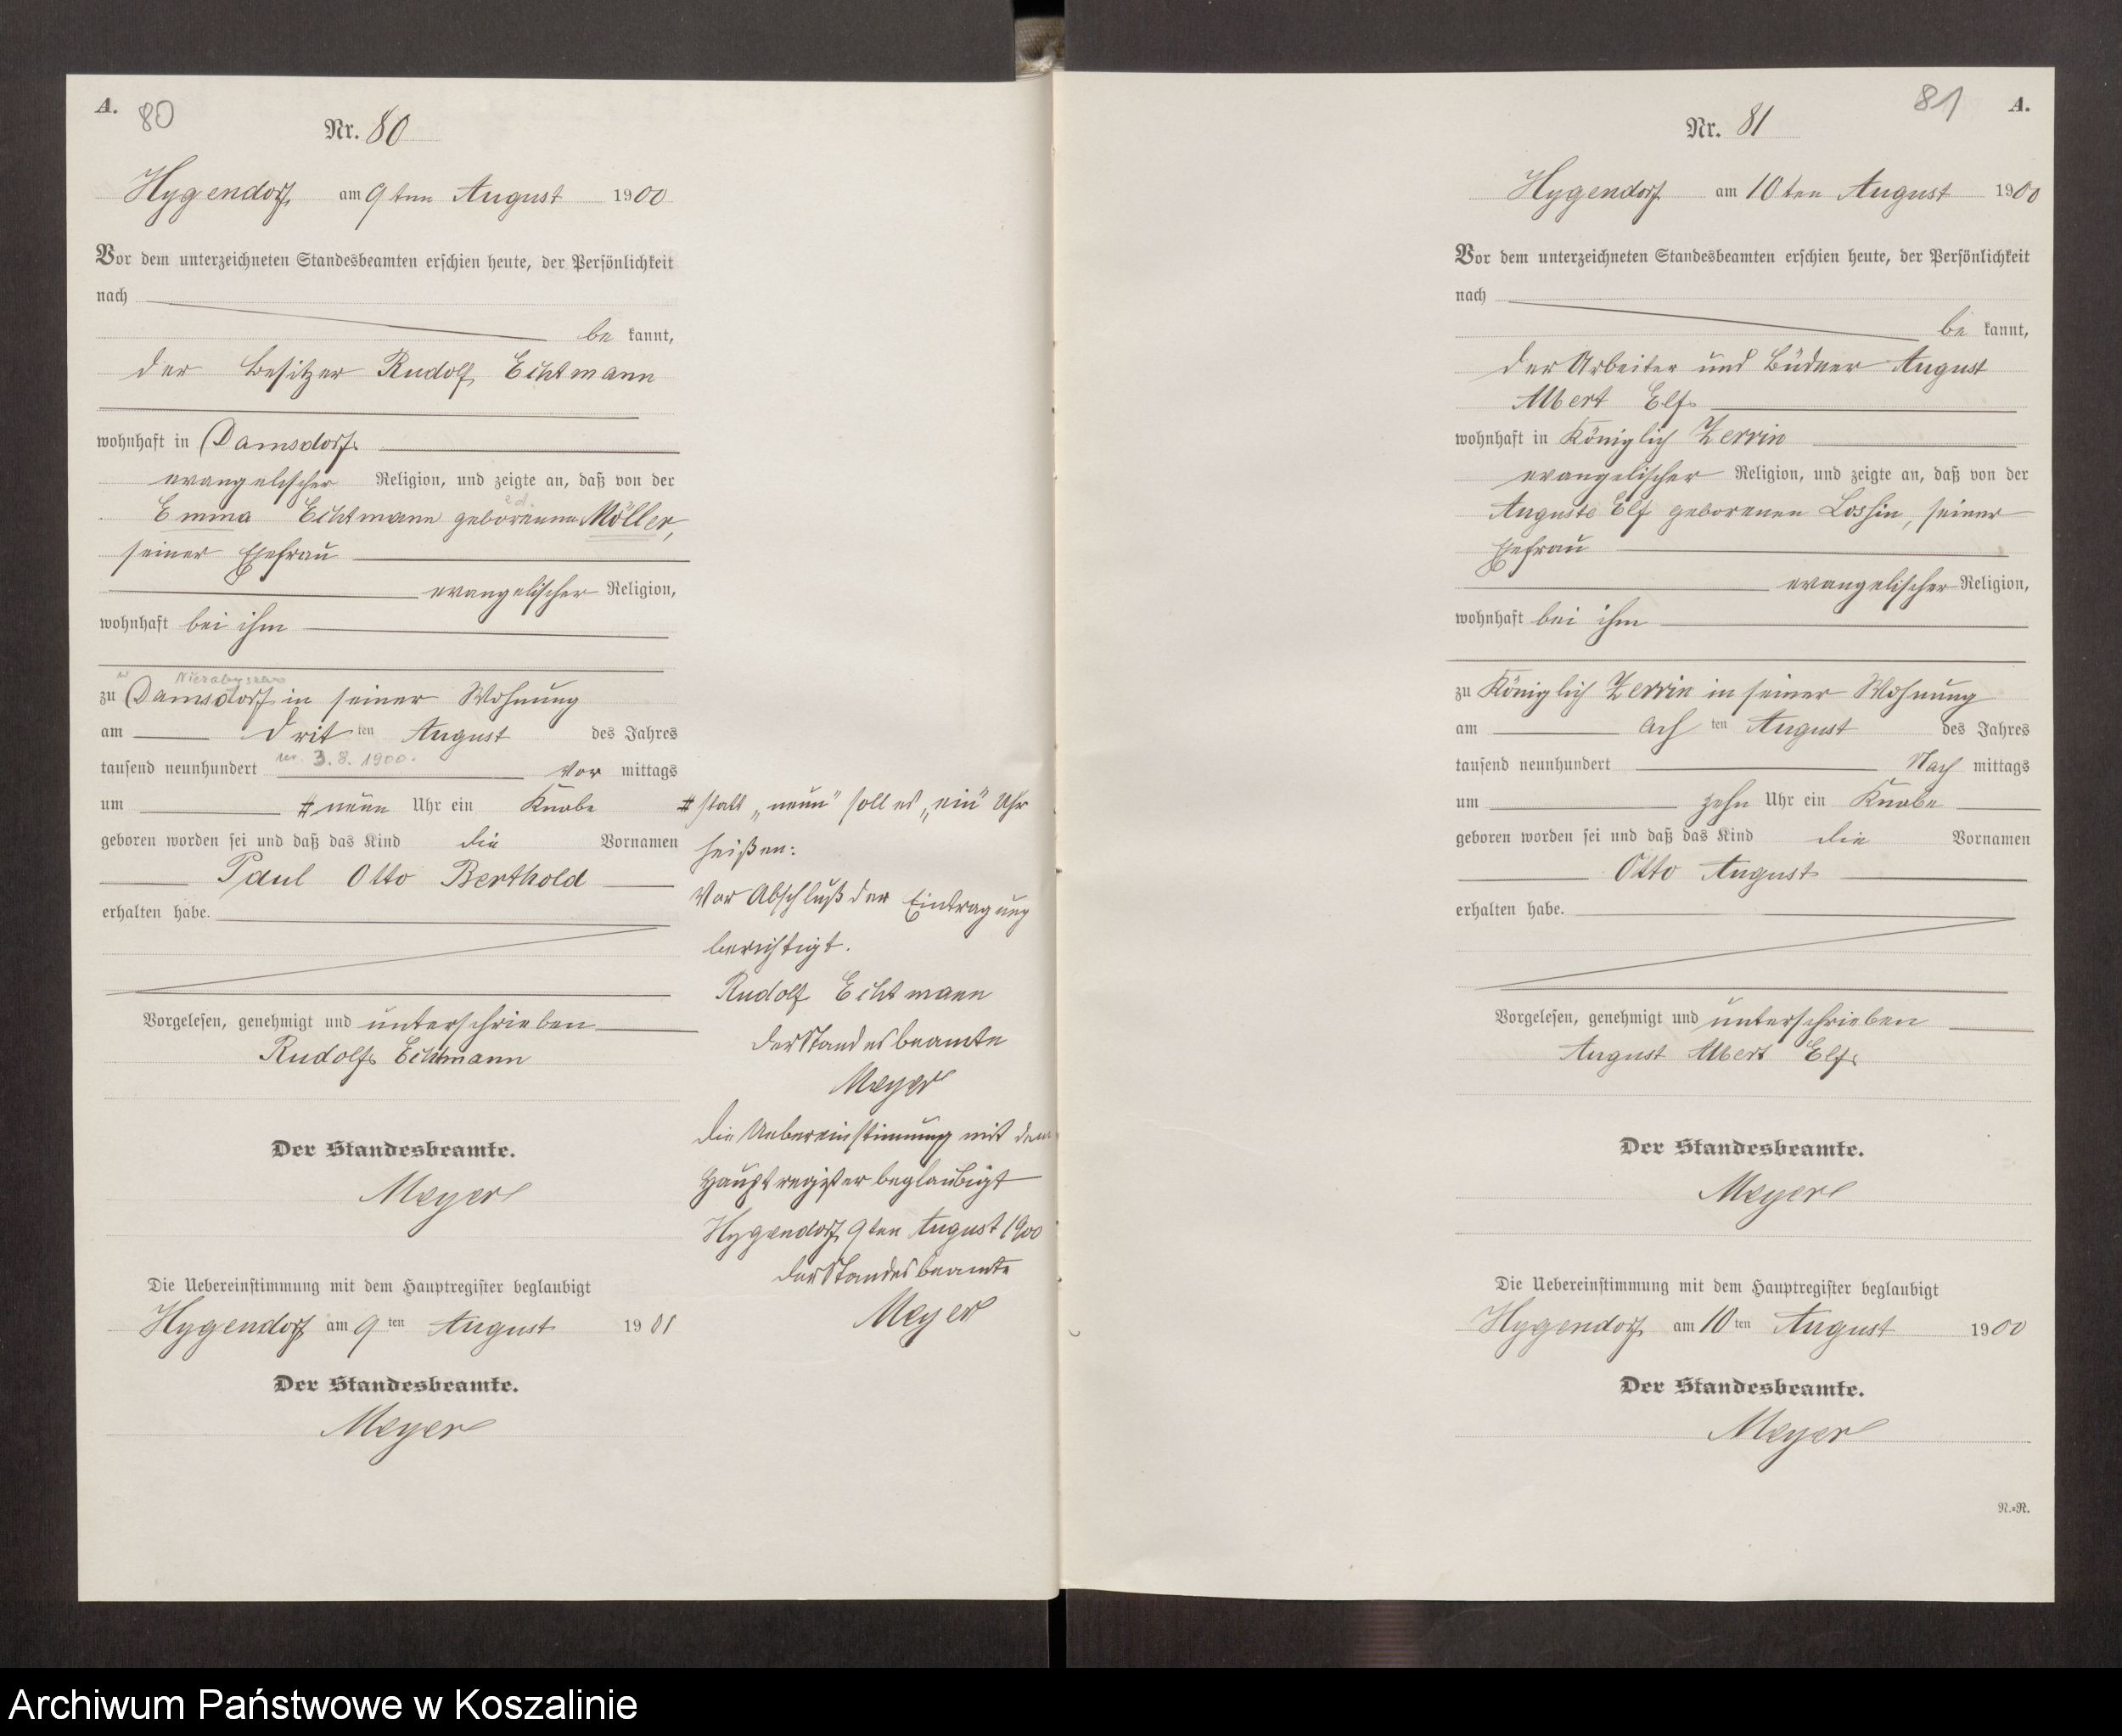 A.
80
Nr. 80
Hygendorf, am 9ten August 1900
Vor dem unterzeichneten Standesbeamten erschien heute, der Persönlichkeit
nach
be kannt,
der Besitzer Rudolf Eichtmann
wohnhaft in Damsdorf
evangelischer Religion, und zeigte an, daß von der
Emma Eichtmann geborenen Möller,
seiner Ehefrau
evangelischer Religion,
wohnhaft bei ihm
zu Damsdorf in seiner Wohnung
am drit ten August des Jahres
3.8.1900.
tausend neunhundert Vor mittags
um # neun Uhr ein Knabe
geboren worden sei und daß das Kind die Vornamen
Paul Otto Berthold
erhalten habe.
Vorgelesen, genehmigt und unterschrieben
Rudolf Eichtmann
Der Standesbeamte.
Meyer
Die Uebereinstimmung mit dem Hauptregister beglaubigt
Hygendorf am 9 ten August 1901
Der Standesbeamte.
Meyer
# statt „neun“ soll es „ein“ Uhr
heißen:
Vor Abschluß der Eintragung
berichtigt.
Rudolf Eichtmann
der Standesbeamte
Meyer
die Uebereinstimmung mit dem
Hauptregister beglaubigt
Hygendorf, 9ten August 1900
der Standesbeamte
Meyer
81
A.
Nr. 81
Hygendorf am 10ten August 1900
Vor dem unterzeichneten Standesbeamten erschien heute, der Persönlichkeit
nach
be kannt,
der Arbeiter und Büdner August
Albert Elf
wohnhaft in Königlich Zerrin
evangelischer Religion, und zeigte an, daß von der
Auguste Elf geborenen Lossin, seiner
Ehefrau
evangelischer Religion,
wohnhaft bei ihm
zu Königlich Zerrin in seiner Wohnung
am ach ten August des Jahres
tausend neunhundert Nach mittags
um zehn Uhr ein Knabe
geboren worden sei und daß das Kind die Vornamen
Otto August
erhalten habe.
Vorgelesen, genehmigt und unterschrieben
August Albert Elf
Der Standesbeamte.
Meyer
Die Uebereinstimmung mit dem Hauptregister beglaubigt
Hygendorf am 10 ten August 1900
Der Standesbeamte.
Meyer
N.=R.
Archiwum Państwowe w Koszalinie